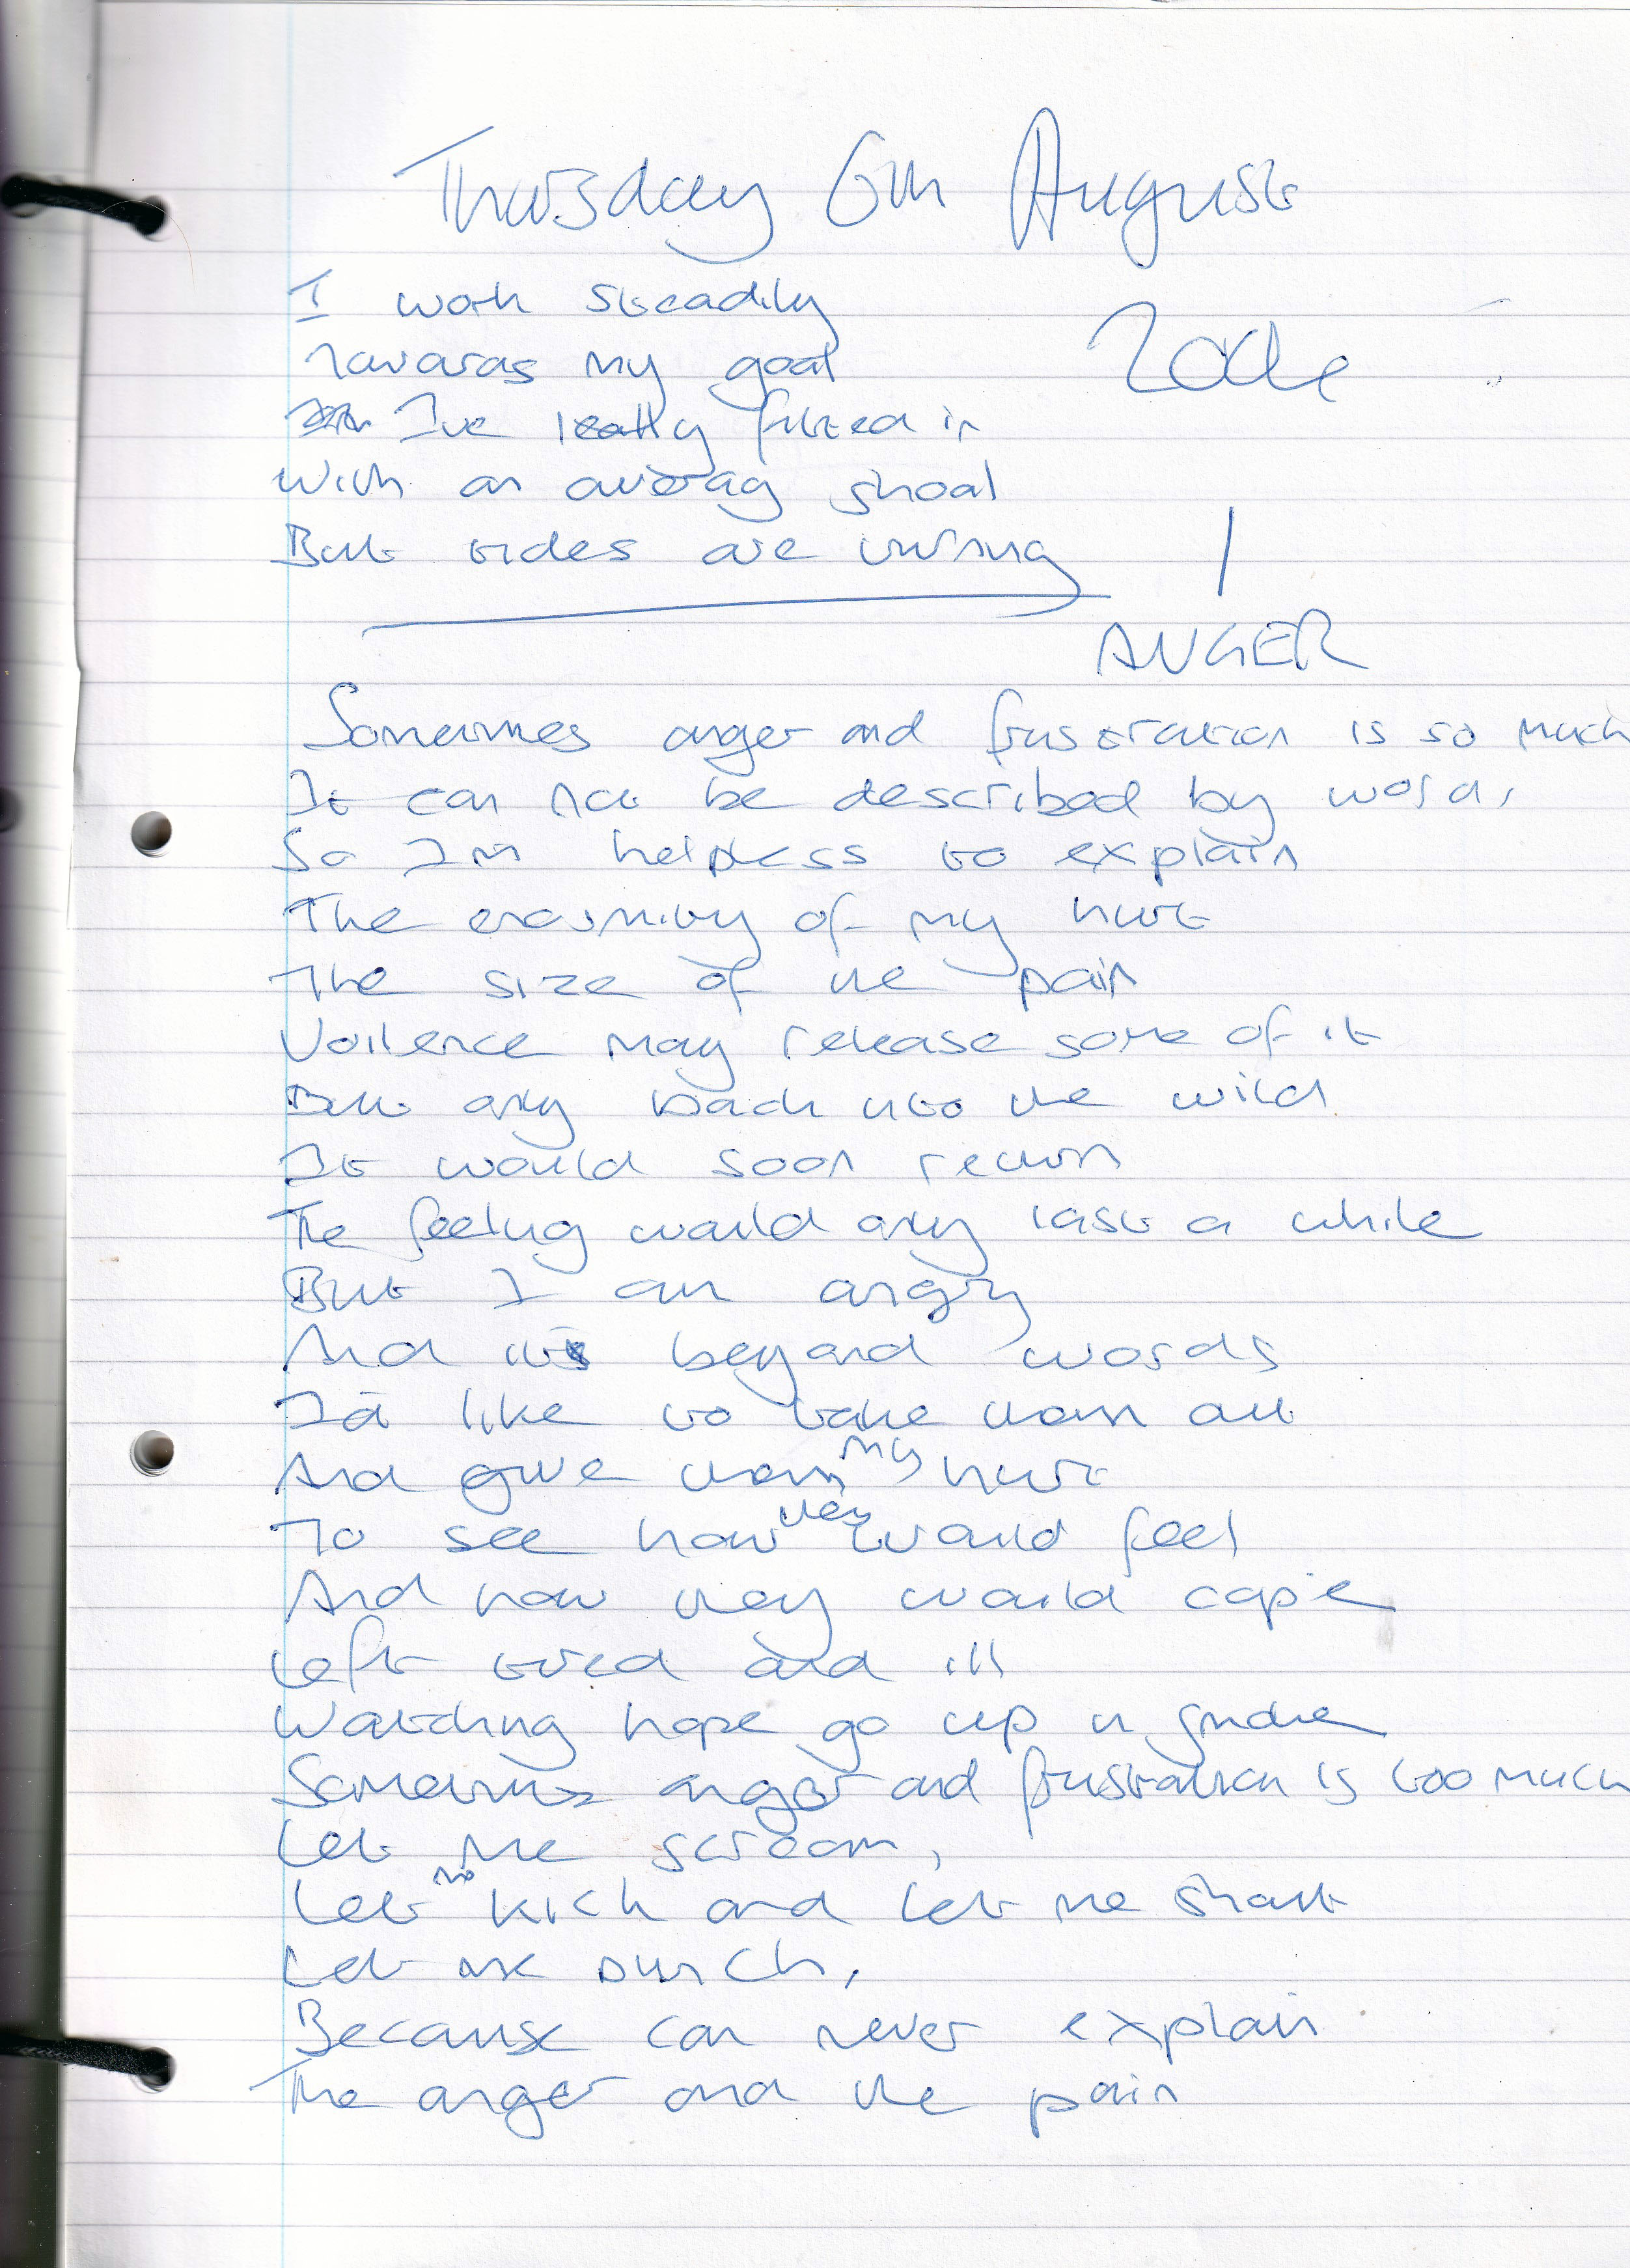 Thursday 6th August
I work steadily
Towards my goal
I've really fitted in
With an averag shoal
But tides are turning
ANGER
Sometimes anger and frustration is so much
It can not be described by words
So Im helpless to explain
The enormity of my hurt
The size of the pain
Voilence may release some of it
But only back into the wild
It would soon return
The feeling would only last a while
But I am angry
And its beyond words
I'd like to take them out
And give them my hurt
To see how they would feel
And how they would cope
Left tired and ill
Watching hope go up in smoke
Sometimes anger and frustration is too much
Let me scream,
Let me kick and let me shout
Let me punch,
Because can never explain
The anger and the pain